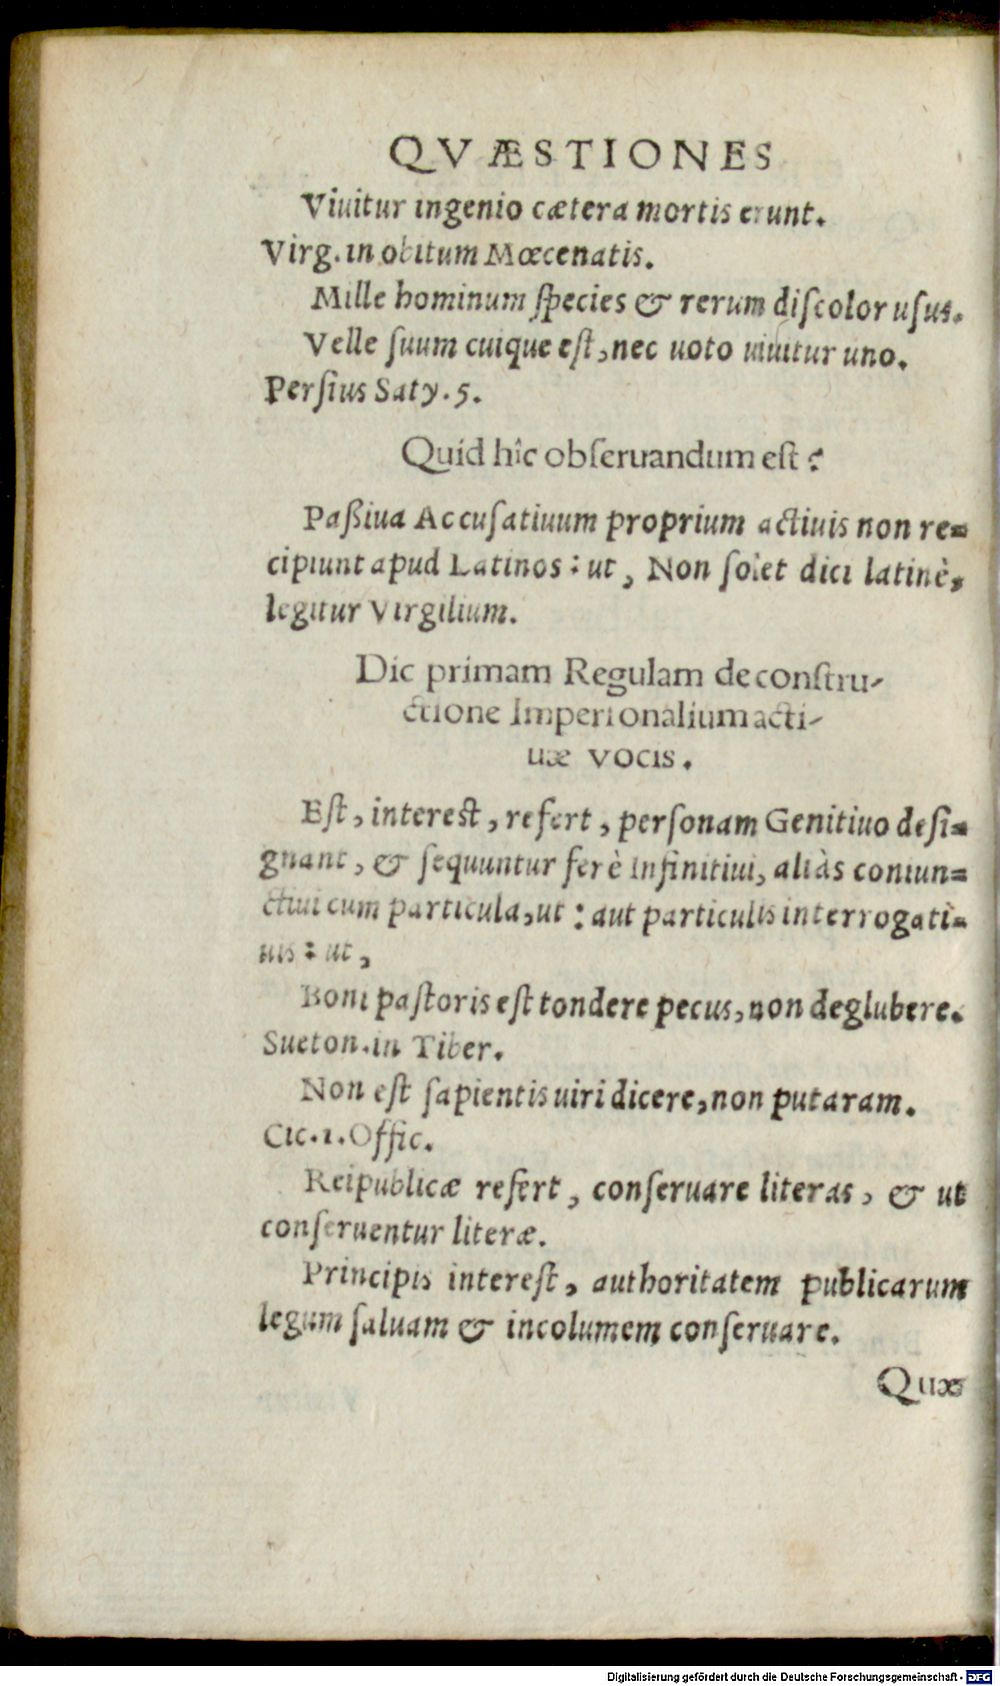 QVÆSTIONES
Viuitur ingenio cætera mortis erunt.
Virg. in obitum Mœcenatis.
Mille hominum ſpecies & rerum diſcolor uſus.
Velle ſuum cuique eſt, nec uoto uiuitur uno.
Perſius Saty. 5.
Quid hîc obſeruandum eſt?
Paßiua Accuſatiuum proprium actiuis non re-
cipiunt apud Latinos: ut, Non ſolet dici latinè,
legitur Virgilium.
Dic primam Regulam de conſtru-
ctione Imperſonalium acti-
uæ vocis.
Eſt, intereſt, refert, perſonam Genitiuo deſi-
gnant, & ſequuntur ferè Infinitiui, aliàs coniun-
ctiui cum particula, ut: aut particulis interrogati-
uis: ut,
Boni paſtoris eſt tondere pecus, non deglubere.
Sueton. in Tiber.
Non eſt ſapientis uiri dicere, non putaram.
Cic. 1. Offic.
Reipublicæ refert, conſeruare literas, & ut
conſeruentur literæ.
Principis intereſt, authoritatem publicarum
legum ſaluam & incolumem conſeruare.
Quæ
Digitalisierung gefördert durch die Deutsche Forschungsgemeinschaft - DFG